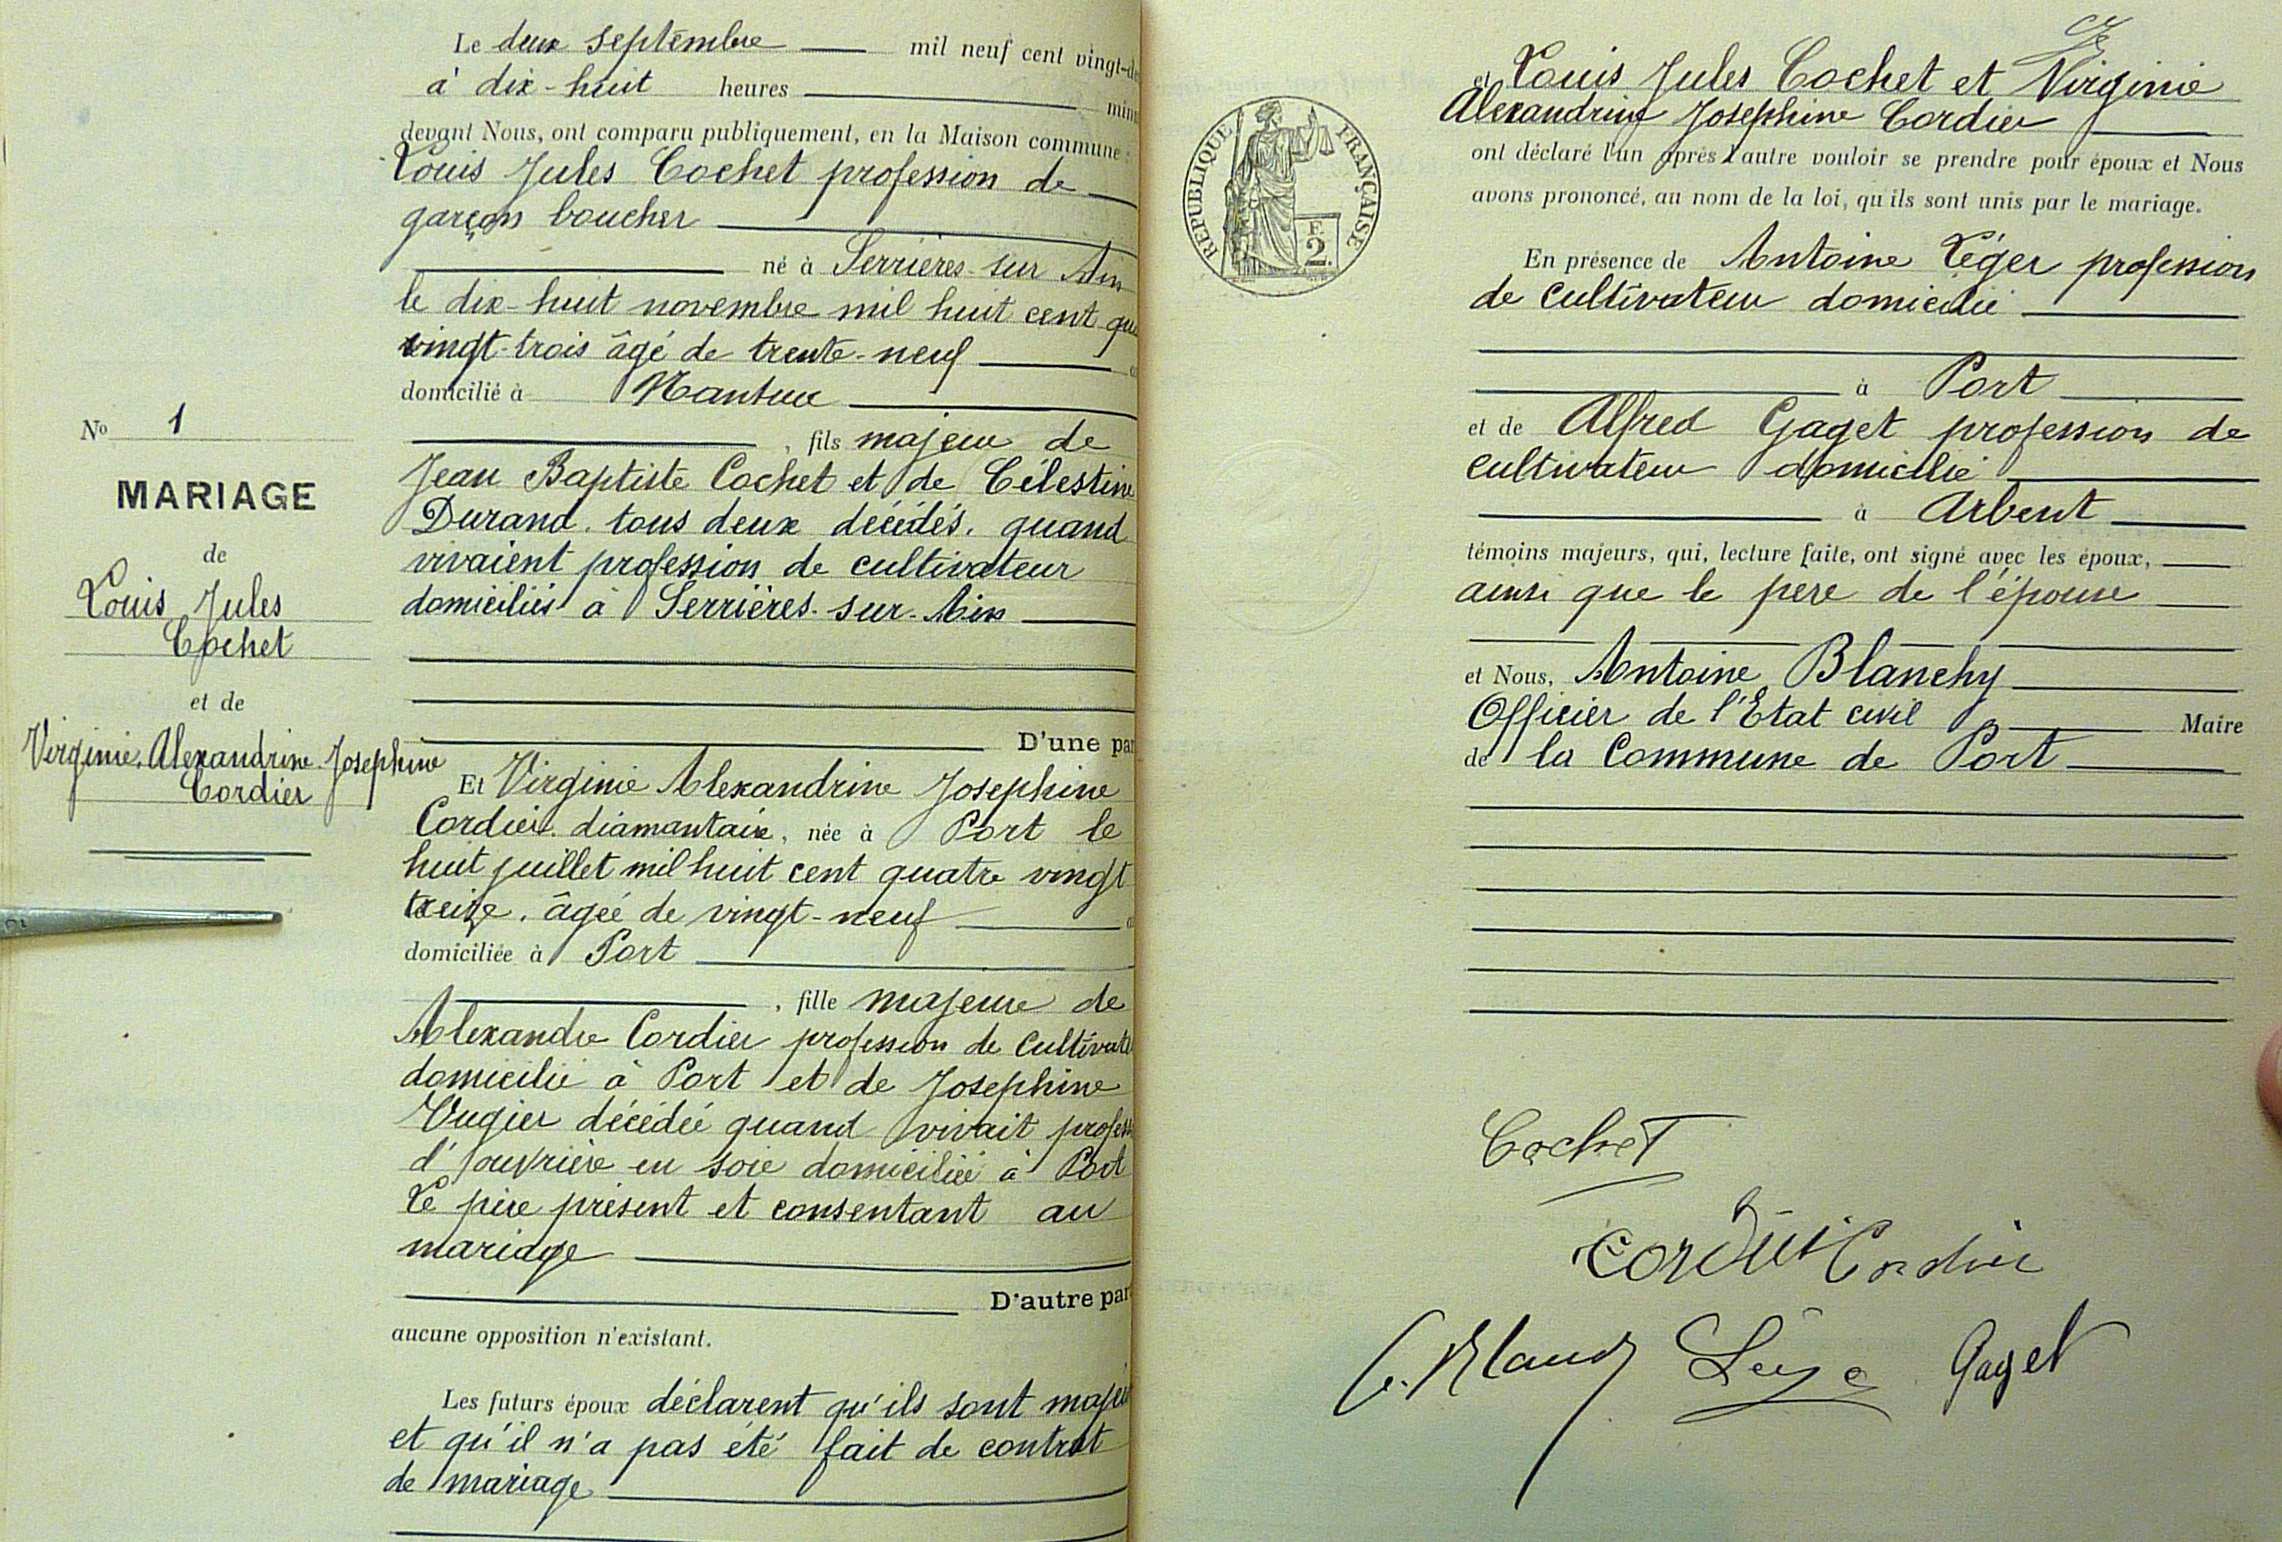 Le deux septembre mil neuf cent vingt-de
à dix-huit heures minu
devant Nous, ont comparu publiquement, en la Maison commune :
Louis Jules Cochet profession de
garçon boucher
né à Serrières-sur Ain
le dix-huit novembre mil huit cent qua
vingt-trois âgé de trente-neuf
domicilié à Nantua
, fils majeur de
Jean Baptiste Cochet et de Célestine
Durand. tous deux décédés. quand
vivaient profession de cultivateur
domiciliés à Serrières-sur-Ain
D'une par
Et Virginie Alexandrine Josephine
Cordier. diamantaire, née à Port le
huit juillet mil huit cent quatre vingt
treize. âgée de vingt-neuf
domiciliée à Port
, fille majeure de
Alexandre Cordier profession de cultivate
domicilié à Port et de Josephine
Vugier décédée quand vivait profess
d'ouvrière en soie domiciliée à Port
Le père présent et consentant au
mariage
D'autre part
aucune opposition n'existant.
Les futurs époux déclarent qu'ils sont majeu
et qu'il n'a pas été fait de contrat
de mariage
No 1
MARIAGE
de
Louis Jules
Cochet
et de
Virginie, Alexandrine Josephine
Cordier
REPUBLIQUE FRANÇAISE
F.
2.
et Louis Jules Cochet et Virginie
Alexandrine Josephine Cordier
ont déclaré l'un après l'autre vouloir se prendre pour époux et Nous
avons prononcé, au nom de la loi, qu'ils sont unis par le mariage.
En présence de Antoine Léger profession
de cultivateur domicilié
à Port
et de Alfred Gaget profession de
cultivateur domicilié
à Arbent
témoins majeurs, qui, lecture faite, ont signé avec les époux,
ainsi que le père de l'épouse
et Nous, Antoine Blanchy
Officier de l'Etat civil Maire
de la Commune de Port
Cochet
Cordier Cordier
Gaget